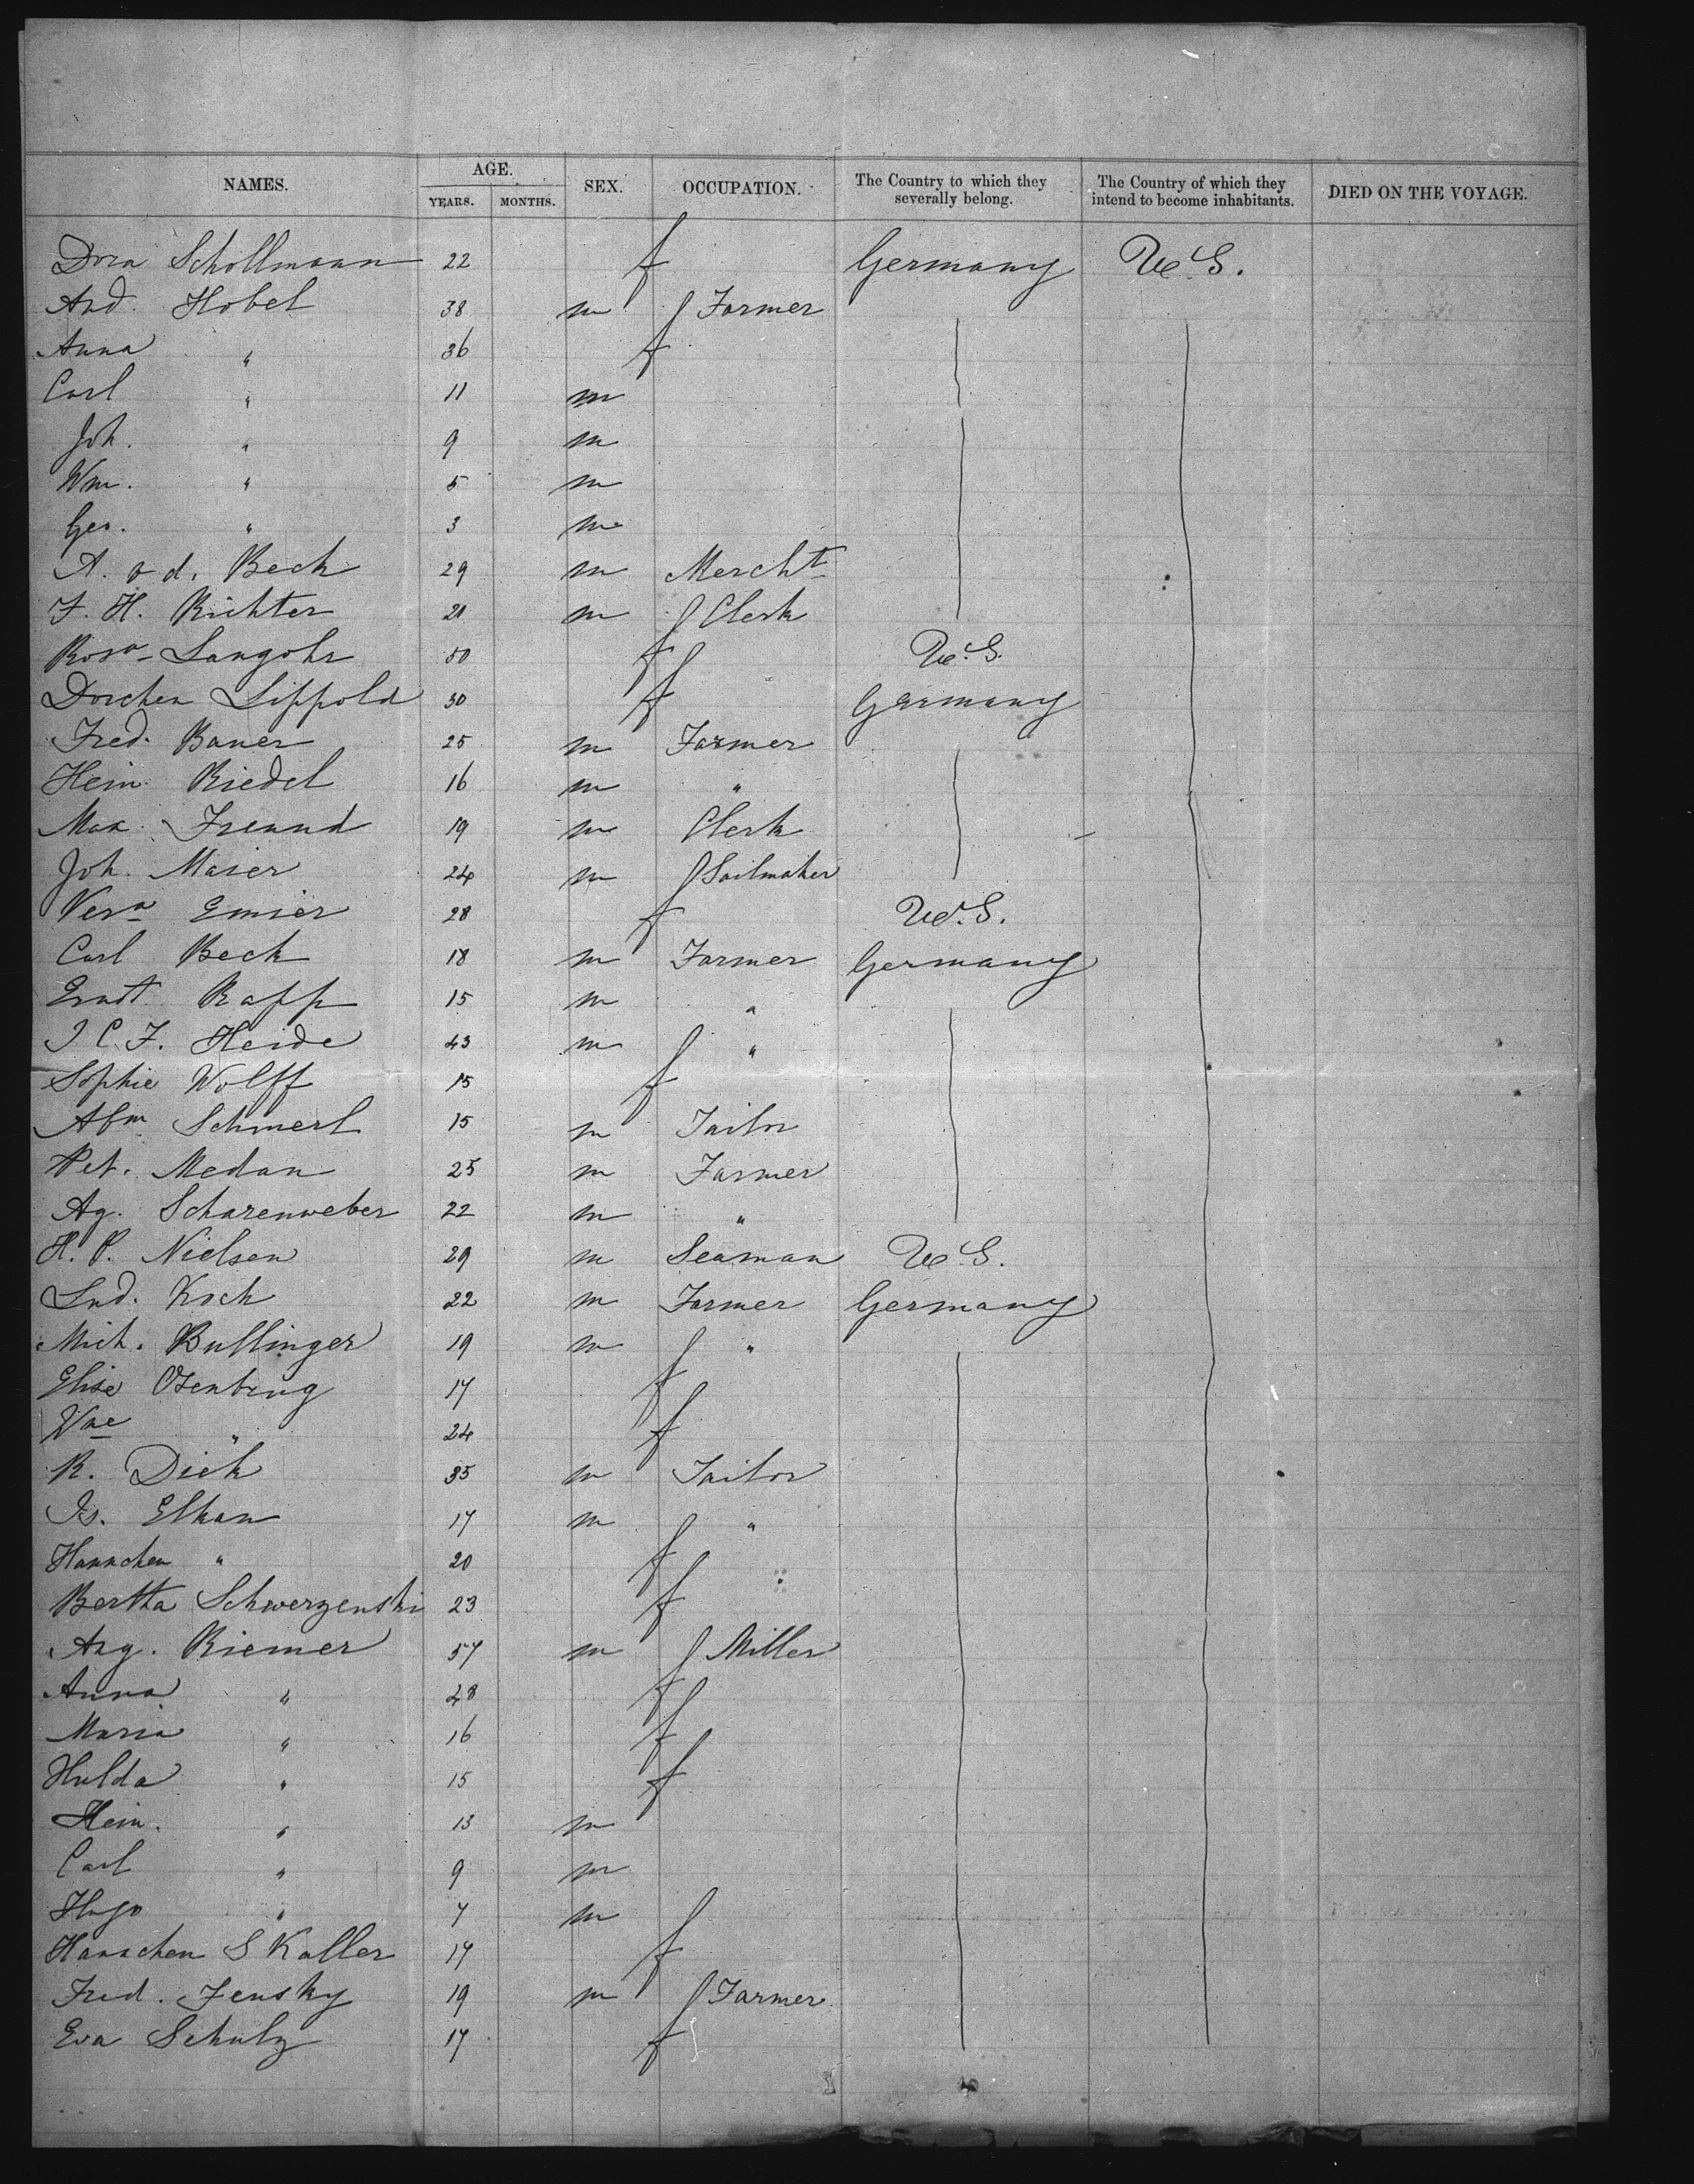 NAMES. AGE. SEX. OCCUPATION. The Country to which they severally belong. The Country of which they intend to become inhabitants. DIED ON THE VOYAGE.
YEARS. MONTHS.
Dora Schollmann 22 f Germany U.S.
And. Hobel 38 m Farmer
Anna " 36 f
Carl " 11 m
Joh. " 9 m
Wm. " 5 m
Geo. " 3 m
A. v d. Beck 29 m Mercht
F. H. Richter 21 m Clerk
Rosa Langohr 50 f U.S.
Dorchen Lippold 30 f Germany
Fred. Bauer 25 m Farmer
Hein. Riedel 16 m "
Max. Freund 19 m Clerk
Joh. Maier 24 m Sailmaker
Vera Emier 28 f U.S.
Carl Beck 18 m Farmer Germany
Ernst Rapp 15 m "
J C. F. Heide 43 m "
Sophie Wolff 15 f
Abm Schmerl 15 m Tailor
Pet. Medan 25 m Farmer
Ag. Scharenweber 22 m "
H. P. Nielsen 29 m Seaman U.S.
Lud. Koch 22 m Farmer Germany
Mich. Bullinger 19 m "
Elise Osenbrug 17 f
Wne " 24 f
R. Dick 35 m Tailor
Is. Elkan 17 m "
Hannchen " 20 f
Bertha Schwerzenski 23 f
Aug. Riemer 57 m Miller
Anna " 48 f
Maria " 16 f
Hulda " 15 f
Hein. " 13 m
Carl " 9 m
Hugo " 7 m
Hannchen S Kaller 17 f
Fred. Jensky 19 m Farmer
Eva Schulz 17 f